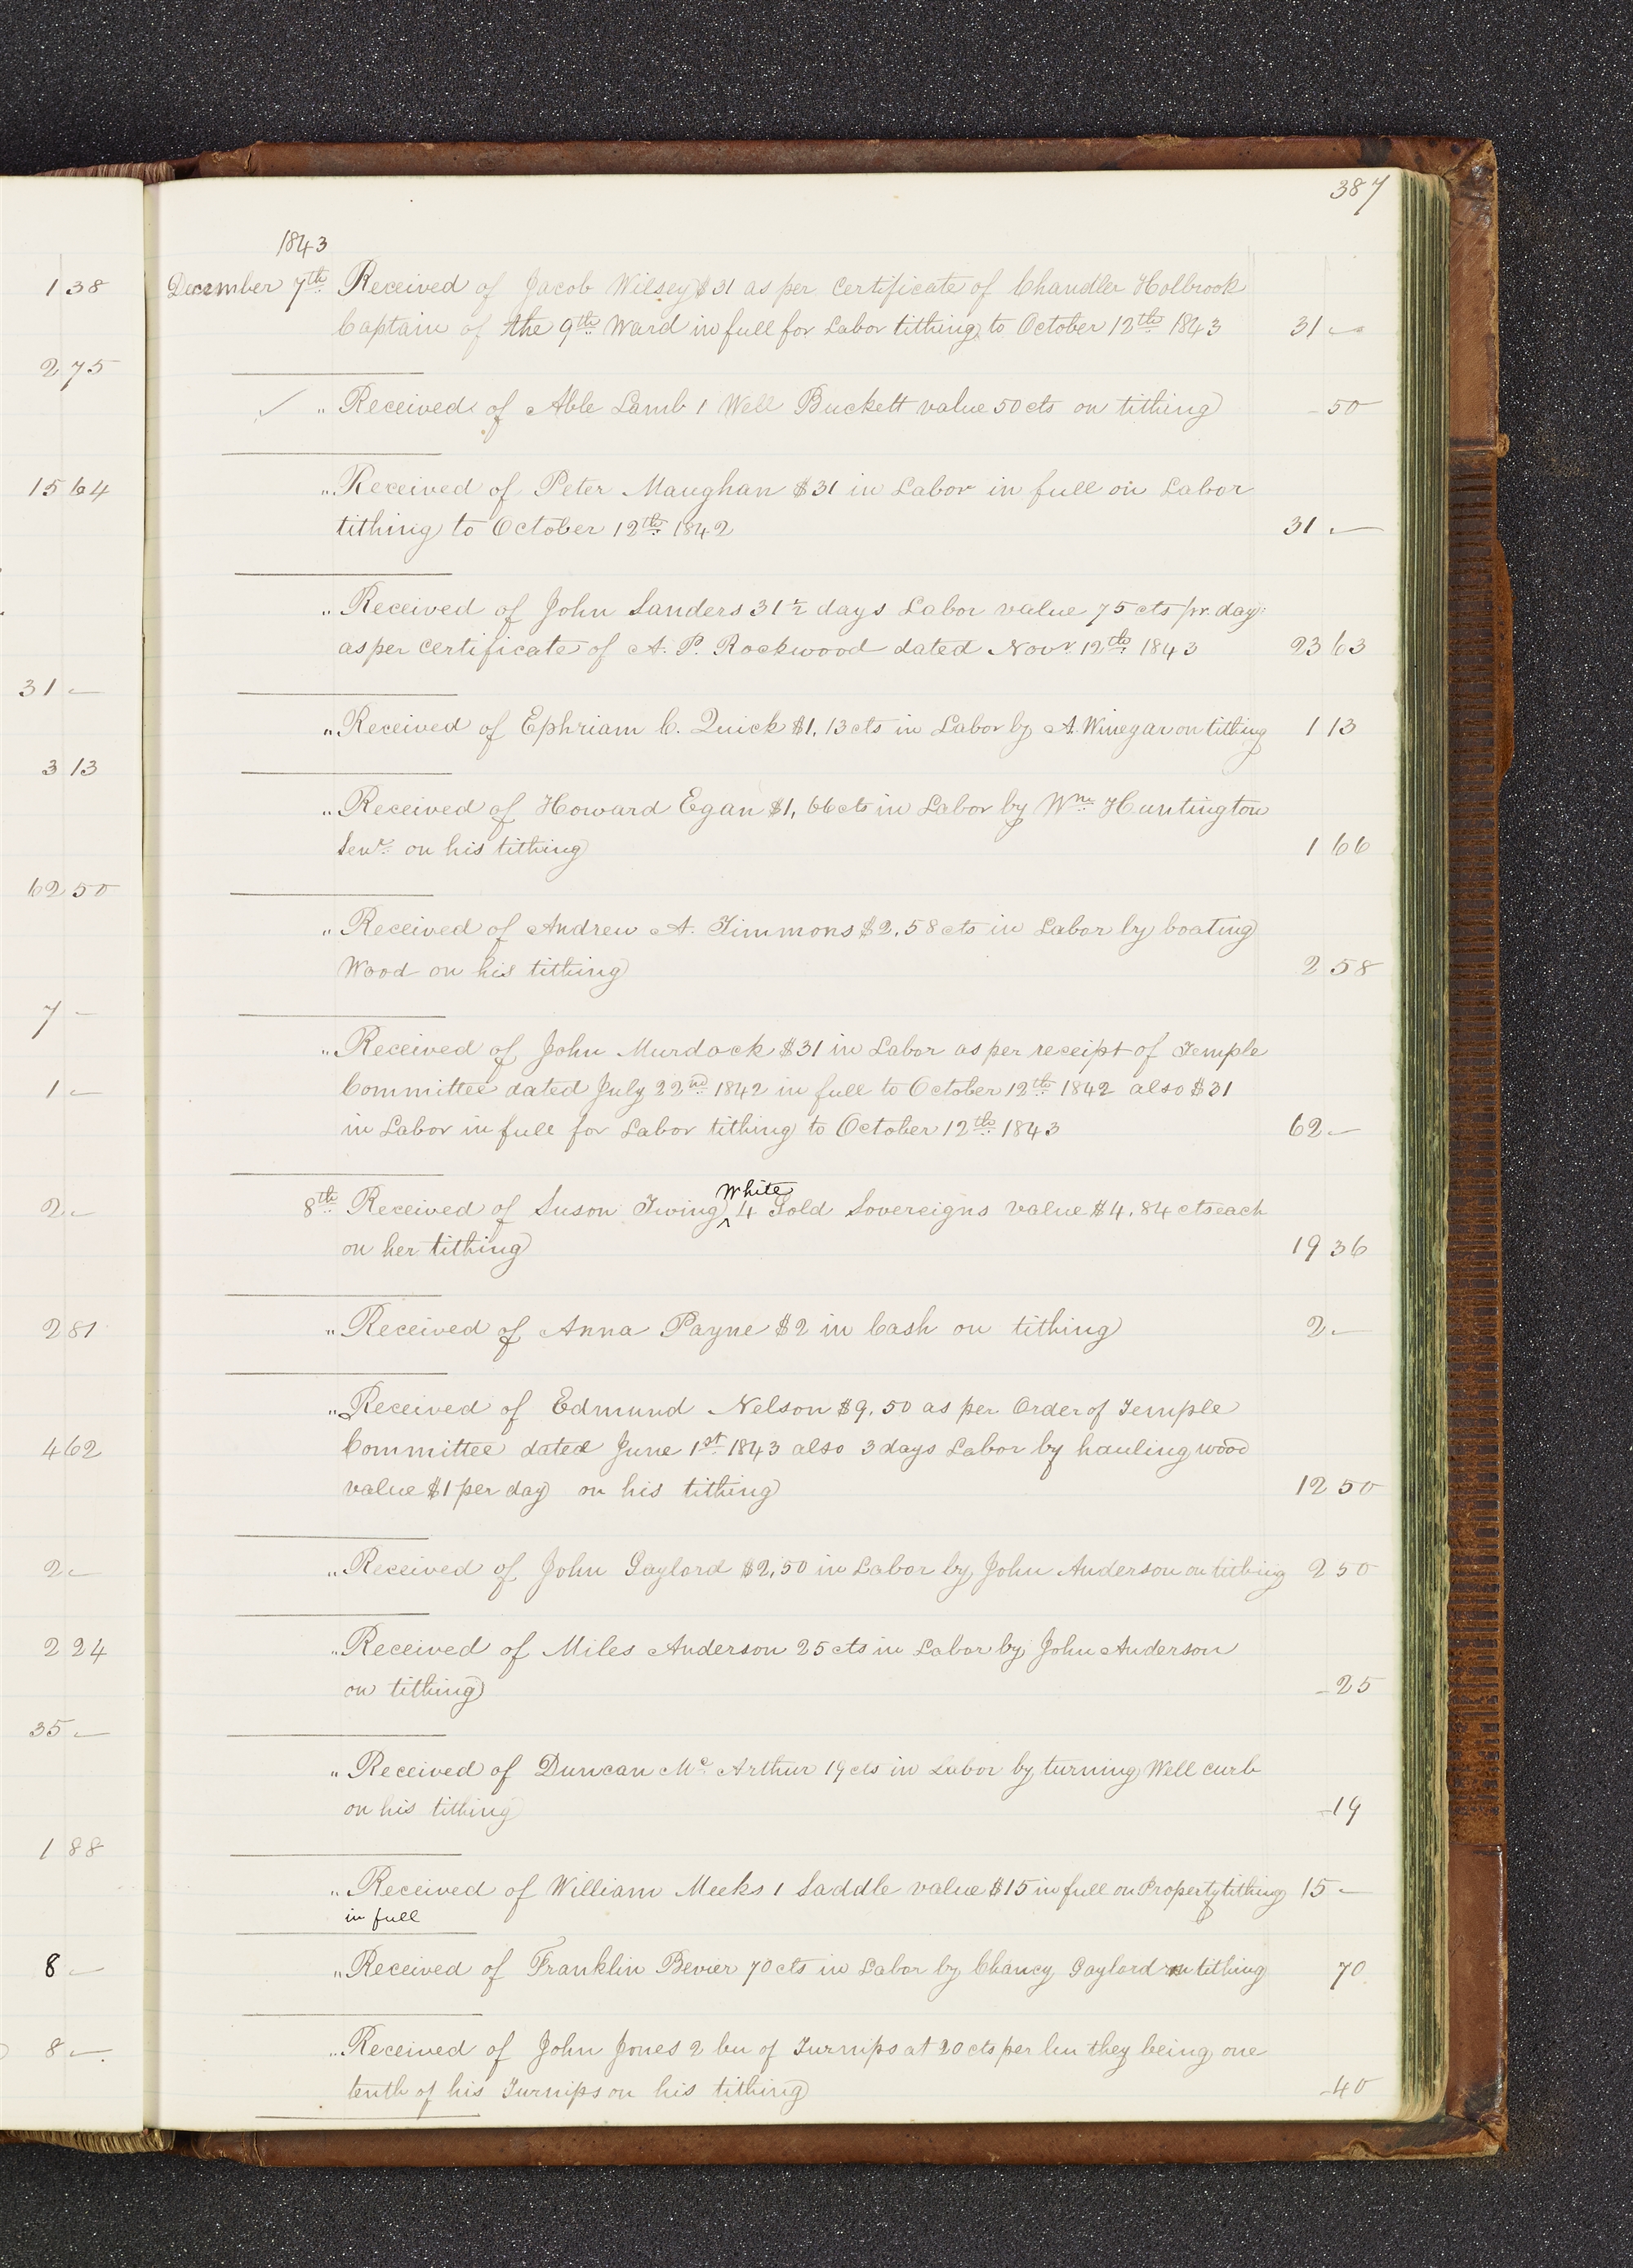 387
1843
138
December 7th Received of Jacob Wilsey $31 as per Certificate of Chandler Holbrook
Captain of the 9th Ward in full for Labor tithing to October 12th 1843 31 —
275
✓ " Received of Able Lamb 1 Well Buckett value 50 cts on tithing - 50
1564
" Received of Peter Maughan $31 in Labor in full on Labor
tithing to October 12th 1842 31 —
" Received of John Sanders 31 1/2 days Labor value 75 cts pr. day
as per certificate of A. P. Rockwood dated Novr. 12th 1843 23 63
31 —
" Received of Ephriam C. Quick $1,13 cts in Labor by A. Winegar on tithing 1 13
3 13
" Received of Howard Egan $1,66 cts in Labor by Wm. Huntington
Senr. on his tithing 1 66
62 50
" Received of Andrew A. Timmons $2,58 cts in Labor by boating
Wood on his tithing 2 58
7 -
" Received of John Murdock $31 in Labor as per receipt of Temple
Committee dated July 22nd 1842 in full to October 12th 1842 also $31
1 —
in Labor in full for Labor tithing to October 12th 1843 62 —
White
8th Received of Suson Twing ^ 4 Gold Sovereigns value $4,84 cts each
2 -
on her tithing 19 36
281
" Received of Anna Payne $2 in Cash on tithing 2 —
" Received of Edmund Nelson $9,50 as per Order of Temple
462
Committee dated June 1st 1843 also 3 days Labor by hauling wood
value $1 per day on his tithing 12 50
2 —
" Received of John Gaylord $2,50 in Labor by John Anderson on tithing 2 50
224
" Received of Miles Anderson 25 cts in Labor by John Anderson
on tithing - 25
35 —
" Received of Duncan Mc. Arthur 19 cts in Labor by turning Well curb
on his tithing - 19
1 88
" Received of William Meeks 1 Saddle value $15 in full on Property tithing 15 —
in full
8 —
" Received of Franklin Bevier 70 cts in Labor by Chancy Gaylord on tithing 70
8 —
" Received of John Jones 2 bu of Turnips at 20 cts per bu they being one
tenth of his Turnips on his tithing - 40